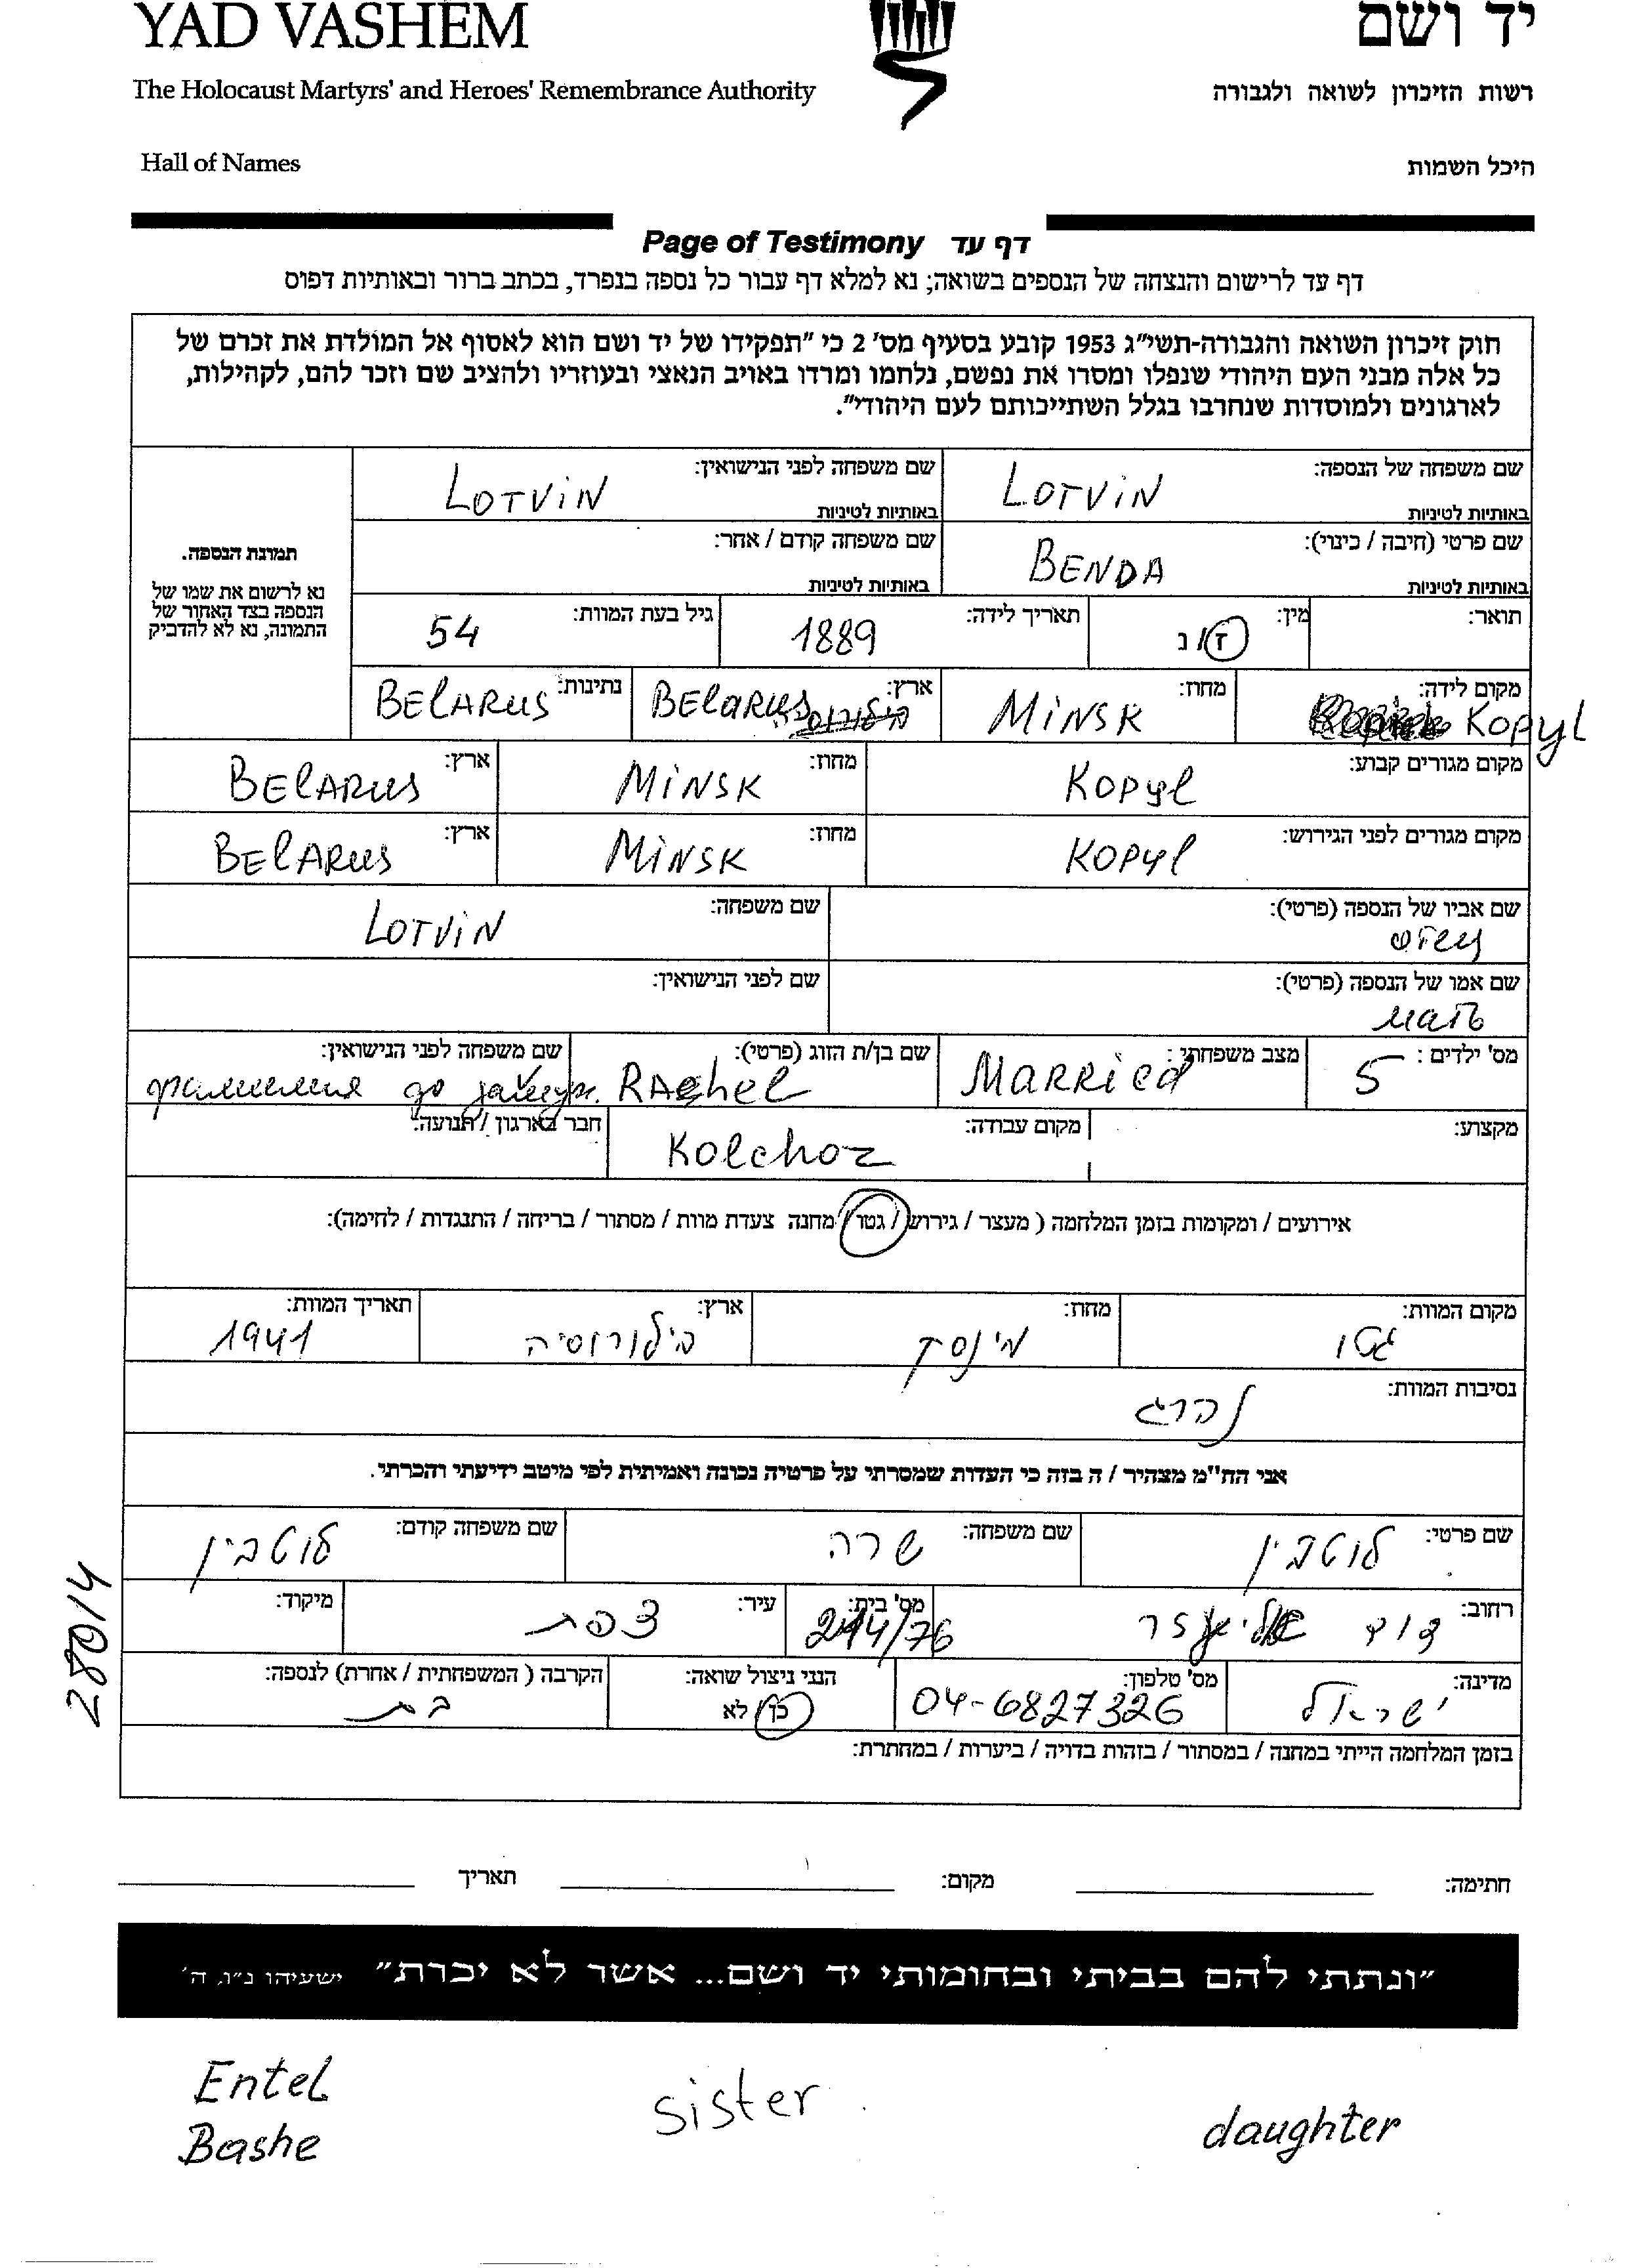 YAD VASHEM יד ושם
The Holocaust Martyrs' and Heroes' Remembrance Authority רשות הזיכרון לשואה ולגבורה
Hall of Names היכל השמות
Page of Testimony דף עד
דף עד לרישום והנצחה של הנספים בשואה; נא למלא דף עבור כל נספה בנפרד, בכתב ברור ובאותיות דפוס
חוק זיכרון השואה והגבורה-תשי"ג 1953 קובע בסעיף מס' 2 כי "תפקידו של יד ושם הוא לאסוף אל המולדת את זכרם של
כל אלה מבני העם היהודי שנפלו ומסרו את נפשם, נלחמו ומרדו באויב הנאצי ובעוזריו ולהציב שם וזכר להם, לקהילות,
לארגונים ולמוסדות שנחרבו בגלל השתייכותם לעם היהודי".
שם משפחה של הנספה: LOTViN באותיות לטיניות
שם משפחה לפני הנישואין: LOTViN באותיות לטיניות
תמונת הנספה.
נא לרשום את שמו של
הנספה בצד האחור של
התמונה, נא לא להדביק
שם פרטי (חיבה / כינוי): BENDA באותיות לטיניות
שם משפחה קודם / אחר: באותיות לטיניות
תואר: מין: ז/נ תאריך לידה: 1889 גיל בעת המוות: 54
מקום לידה: Kopyl מחוז: MiNSK ארץ: BElaRUS נתינות: BElARUS
מקום מגורים קבוע: Kopyl מחוז: MiNSK ארץ: BElARUS
מקום מגורים לפני הגירוש: Kopyl מחוז: MiNSK ארץ: BElARUS
שם אביו של הנספה (פרטי): отец שם משפחה: LOTViN
שם אמו של הנספה (פרטי): мать שם לפני הנישואין:
מס' ילדים: 5 מצב משפחתי: MARRiEd שם בן/ת הזוג (פרטי): RAchel שם משפחה לפני הנישואין: фамилия до замуж.
מקצוע: מקום עבודה: Kolchoz חבר בארגון / תנועה:
אירועים / ומקומות בזמן המלחמה ( מעצר / גירוש / גטו / מחנה צעדת מוות / מסתור / בריחה / התנגדות / לחימה):
מקום המוות: גטו מחוז: מינסק ארץ: בילורוסיה תאריך המוות: 1941
נסיבות המוות: נהרג
אני הח"מ מצהיר / ה בזה כי העדות שמסרתי על פרטיה נכונה ואמיתית לפי מיטב ידיעתי והכרתי.
שם פרטי: לוטבין שם משפחה: שרה שם משפחה קודם: לוטבין
רחוב: דוד אליעזר מס' בית: 214/76 עיר: צפת מיקוד:
28014
מדינה: ישראל מס' טלפון: 04-6827326 הנני ניצול שואה: כן / לא הקרבה ( המשפחתית / אחרת) לנספה: בת
בזמן המלחמה הייתי במחנה / במסתור / בזהות בדויה / ביערות / במחתרת:
חתימה: מקום: תאריך
"ונתתי להם בביתי ובחומותי יד ושם... אשר לא יכרת" ישעיהו נ"ו, ה'
Entel
Bashe
sister
daughter